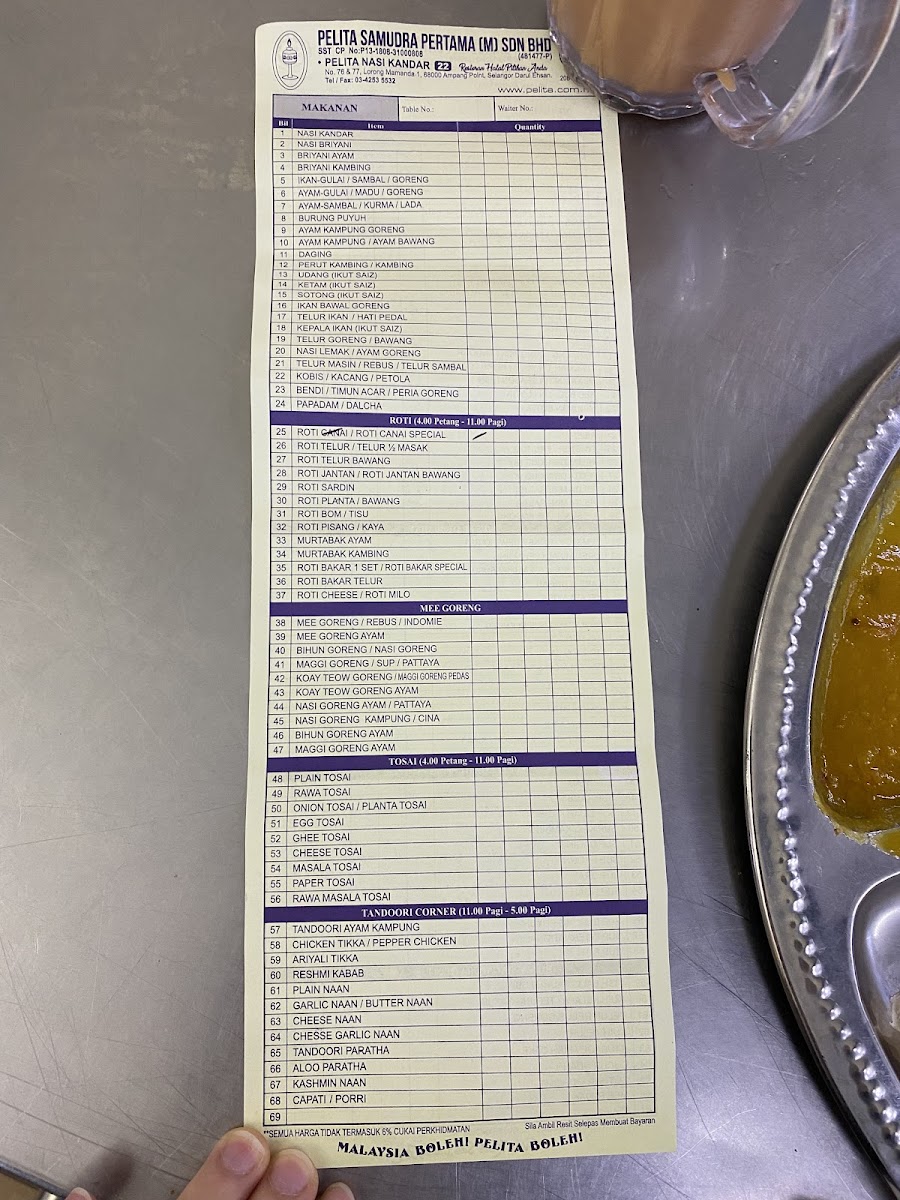 PELITA SAMUDRA PERTAMA (M) SDN BHD
SST CP No:P13-1808-31000808 (481477-P)
• PELITA NASI KANDAR 22 Restoran Halal Pilihan Anda
No. 76 & 77, Lorong Mamanda 1, 68000 Ampang Point, Selangor Darul Ehsan.
Tel / Fax: 03-4253 5532
www.pelita.com
MAKANAN Table No.: Waiter No.:
Bil Item Quantity
1 NASI KANDAR
2 NASI BRIYANI
3 BRIYANI AYAM
4 BRIYANI KAMBING
5 IKAN-GULAI / SAMBAL / GORENG
6 AYAM-GULAI / MADU / GORENG
7 AYAM-SAMBAL / KURMA / LADA
8 BURUNG PUYUH
9 AYAM KAMPUNG GORENG
10 AYAM KAMPUNG / AYAM BAWANG
11 DAGING
12 PERUT KAMBING / KAMBING
13 UDANG (IKUT SAIZ)
14 KETAM (IKUT SAIZ)
15 SOTONG (IKUT SAIZ)
16 IKAN BAWAL GORENG
17 TELUR IKAN / HATI PEDAL
18 KEPALA IKAN (IKUT SAIZ)
19 TELUR GORENG / BAWANG
20 NASI LEMAK / AYAM GORENG
21 TELUR MASIN / REBUS / TELUR SAMBAL
22 KOBIS / KACANG / PETOLA
23 BENDI / TIMUN ACAR / PERIA GORENG
24 PAPADAM / DALCHA
ROTI (4.00 Petang - 11.00 Pagi)
25 ROTI CANAI / ROTI CANAI SPECIAL
26 ROTI TELUR / TELUR ½ MASAK
27 ROTI TELUR BAWANG
28 ROTI JANTAN / ROTI JANTAN BAWANG
29 ROTI SARDIN
30 ROTI PLANTA / BAWANG
31 ROTI BOM / TISU
32 ROTI PISANG / KAYA
33 MURTABAK AYAM
34 MURTABAK KAMBING
35 ROTI BAKAR 1 SET / ROTI BAKAR SPECIAL
36 ROTI BAKAR TELUR
37 ROTI CHEESE / ROTI MILO
MEE GORENG
38 MEE GORENG / REBUS / INDOMIE
39 MEE GORENG AYAM
40 BIHUN GORENG / NASI GORENG
41 MAGGI GORENG / SUP / PATTAYA
42 KOAY TEOW GORENG / MAGGI GORENG PEDAS
43 KOAY TEOW GORENG AYAM
44 NASI GORENG AYAM / PATTAYA
45 NASI GORENG KAMPUNG / CINA
46 BIHUN GORENG AYAM
47 MAGGI GORENG AYAM
TOSAI (4.00 Petang - 11.00 Pagi)
48 PLAIN TOSAI
49 RAWA TOSAI
50 ONION TOSAI / PLANTA TOSAI
51 EGG TOSAI
52 GHEE TOSAI
53 CHEESE TOSAI
54 MASALA TOSAI
55 PAPER TOSAI
56 RAWA MASALA TOSAI
TANDOORI CORNER (11.00 Pagi - 5.00 Pagi)
57 TANDOORI AYAM KAMPUNG
58 CHICKEN TIKKA / PEPPER CHICKEN
59 ARIYALI TIKKA
60 RESHMI KABAB
61 PLAIN NAAN
62 GARLIC NAAN / BUTTER NAAN
63 CHEESE NAAN
64 CHESSE GARLIC NAAN
65 TANDOORI PARATHA
66 ALOO PARATHA
67 KASHMIN NAAN
68 CAPATI / PORRI
69
**SEMUA HARGA TIDAK TERMASUK 6% CUKAI PERKHIDMATAN Sila Ambil Resit Selepas Membuat Bayaran
MALAYSIA BOLEH! PELITA BOLEH!